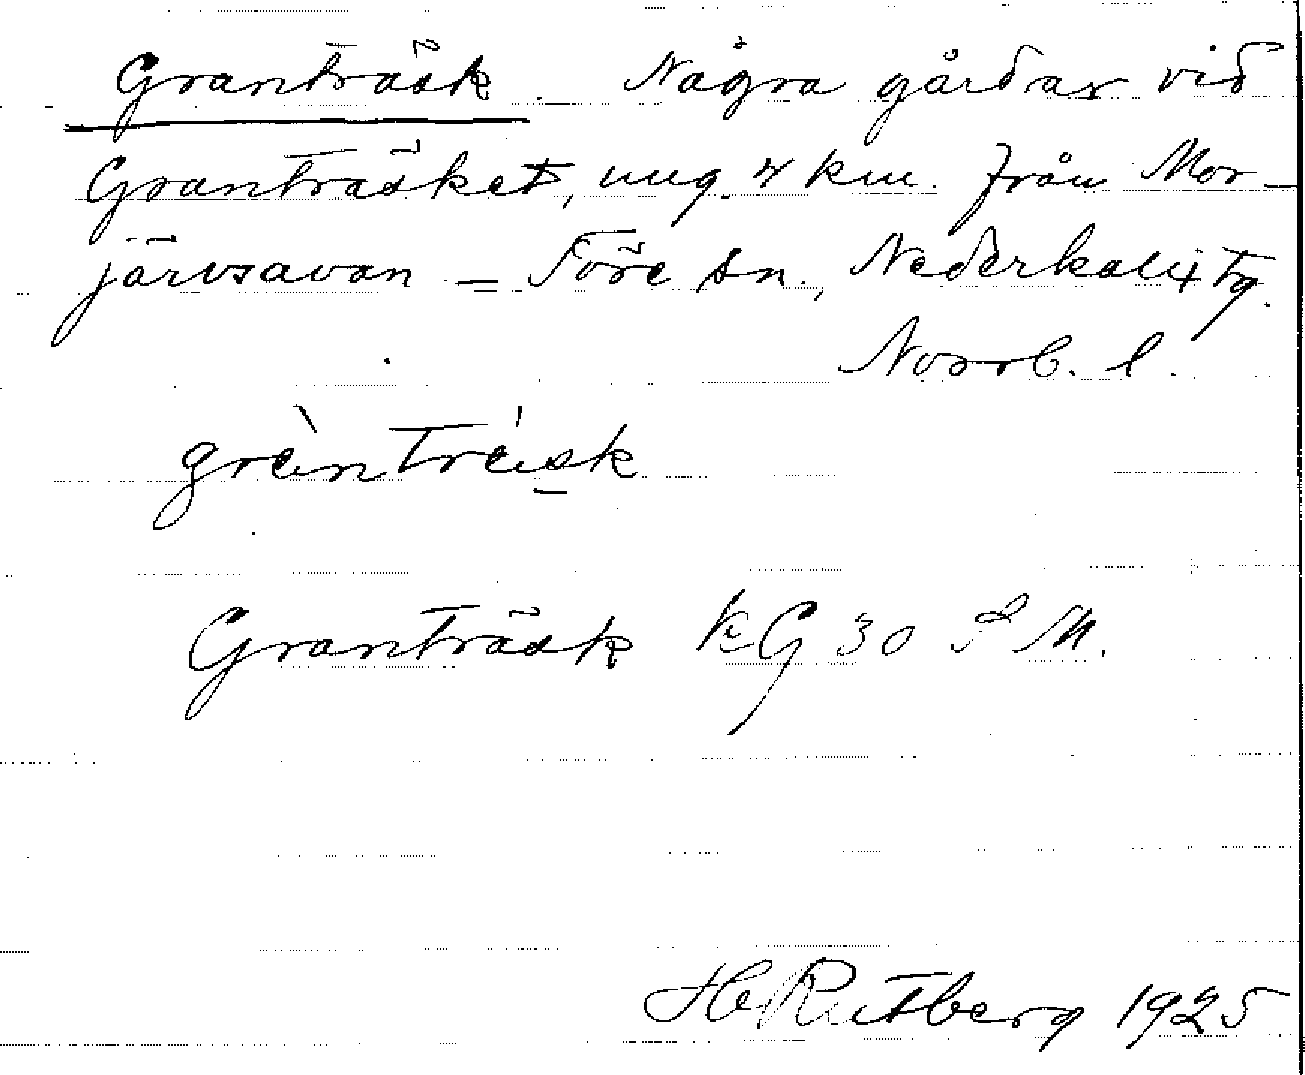 Granträsk. Några gårdar vid
Granträsket, ung. 7 km. från Mor-
järvsavan = Töre sn., Nederkalix tg.
Norrb. l.
Granträsk KG 30 S M.
H Rutberg 1925